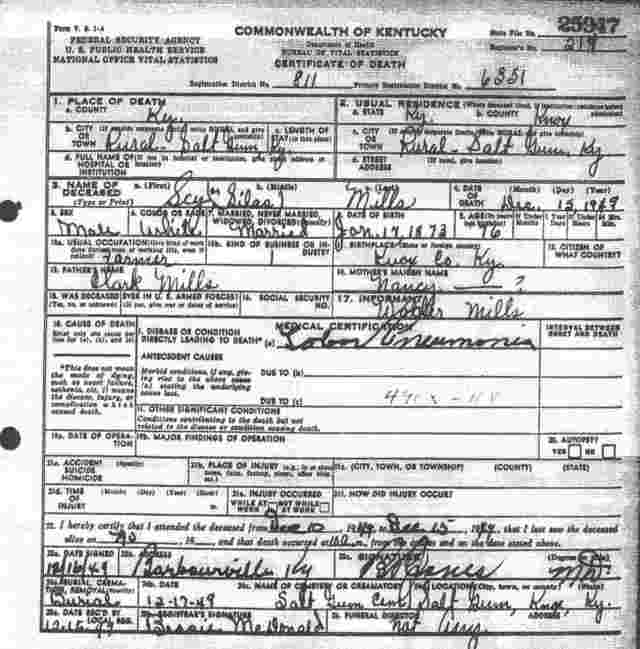 Form V. S. 1-A
FEDERAL SECURITY AGENCY
U. S. PUBLIC HEALTH SERVICE
NATIONAL OFFICE VITAL STATISTICS
COMMONWEALTH OF KENTUCKY
Department of Health
BUREAU OF VITAL STATISTICS
CERTIFICATE OF DEATH
State File No. 25347
Registrar's No. 219
Registration District No. 811 Primary Registration District No. 6351
1. PLACE OF DEATH
a. COUNTY Ky.
2. USUAL RESIDENCE
a. STATE Ky. b. COUNTY Knox
b. CITY OR TOWN Rural - Salt Gum Ky. c. LENGTH OF STAY (in this place)
c. CITY OR TOWN Rural - Salt Gum, Ky
d. FULL NAME OF HOSPITAL OR INSTITUTION
d. STREET ADDRESS (If rural, give location)
3. NAME OF DECEASED (Type or Print) a. (First) Silas b. (Middle) c. (Last) Mills
4. DATE OF DEATH (Month) (Day) (Year) Dec. 15, 1949
5. SEX Male
6. COLOR OR RACE White
7. MARRIED, NEVER MARRIED, WIDOWED, DIVORCED Married
8. DATE OF BIRTH Jan. 17, 1873
9. AGE 76
10a. USUAL OCCUPATION Farmer
10b. KIND OF BUSINESS OR INDUSTRY
11. BIRTHPLACE Knox Co. Ky.
12. CITIZEN OF WHAT COUNTRY?
13. FATHER'S NAME Clark Mills
14. MOTHER'S MAIDEN NAME Nancy — ?
15. WAS DECEASED EVER IN U. S. ARMED FORCES?
16. SOCIAL SECURITY NO.
17. INFORMANT Mills
18. CAUSE OF DEATH
Enter only one cause per line for (a), (b), and (c)
MEDICAL CERTIFICATION
INTERVAL BETWEEN ONSET AND DEATH
I. DISEASE OR CONDITION DIRECTLY LEADING TO DEATH* (a) Lobar Pneumonia
*This does not mean the mode of dying, such as heart failure, asthenia, etc. It means the disease, injury, or complication which caused death.
ANTECEDENT CAUSES
Morbid conditions, if any, giving rise to the above cause (a) stating the underlying cause last.
DUE TO (b)
DUE TO (c)
II. OTHER SIGNIFICANT CONDITIONS
Conditions contributing to the death but not related to the disease or condition causing death.
19a. DATE OF OPERATION
19b. MAJOR FINDINGS OF OPERATION
20. AUTOPSY? YES NO
21a. ACCIDENT SUICIDE HOMICIDE (Specify)
21b. PLACE OF INJURY
21c. (CITY, TOWN, OR TOWNSHIP) (COUNTY) (STATE)
21d. TIME OF INJURY (Month) (Day) (Year) (Hour)
21e. INJURY OCCURRED WHILE AT WORK NOT WHILE AT WORK
21f. HOW DID INJURY OCCUR?
22. I hereby certify that I attended the deceased from Dec 10, 1949, to Dec 15, 1949, that I last saw the deceased
alive on 19 , and that death occurred at m., from the causes and on the date stated above.
23a. DATE SIGNED 12/16/49
23b. ADDRESS Barbourville Ky
23c. SIGNATURE
24a. BURIAL, CREMATION, REMOVAL Burial
24b. DATE 12-17-49
24c. NAME OF CEMETERY OR CREMATORY Salt Gum Cem.
24d. LOCATION (City, town, or county) (State) Salt Gum, Knox, Ky.
25a. DATE REC'D BY LOCAL REG.
25b. REGISTRAR'S SIGNATURE Bessie McDonald
26. FUNERAL DIRECTOR ADDRESS not any.